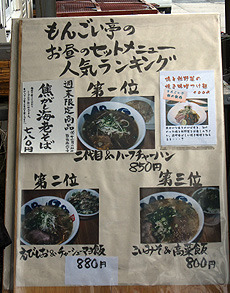 もんごい亭の
お昼のセットメニュー
人気ランキング
週末限定商品
焦がし海老そば
七八〇円
第一位
二代目&ハーフチャーハン
850円
第二位
えびしお&チャーシューマヨ飯
880円
第三位
こいみそ&高菜飯
800円